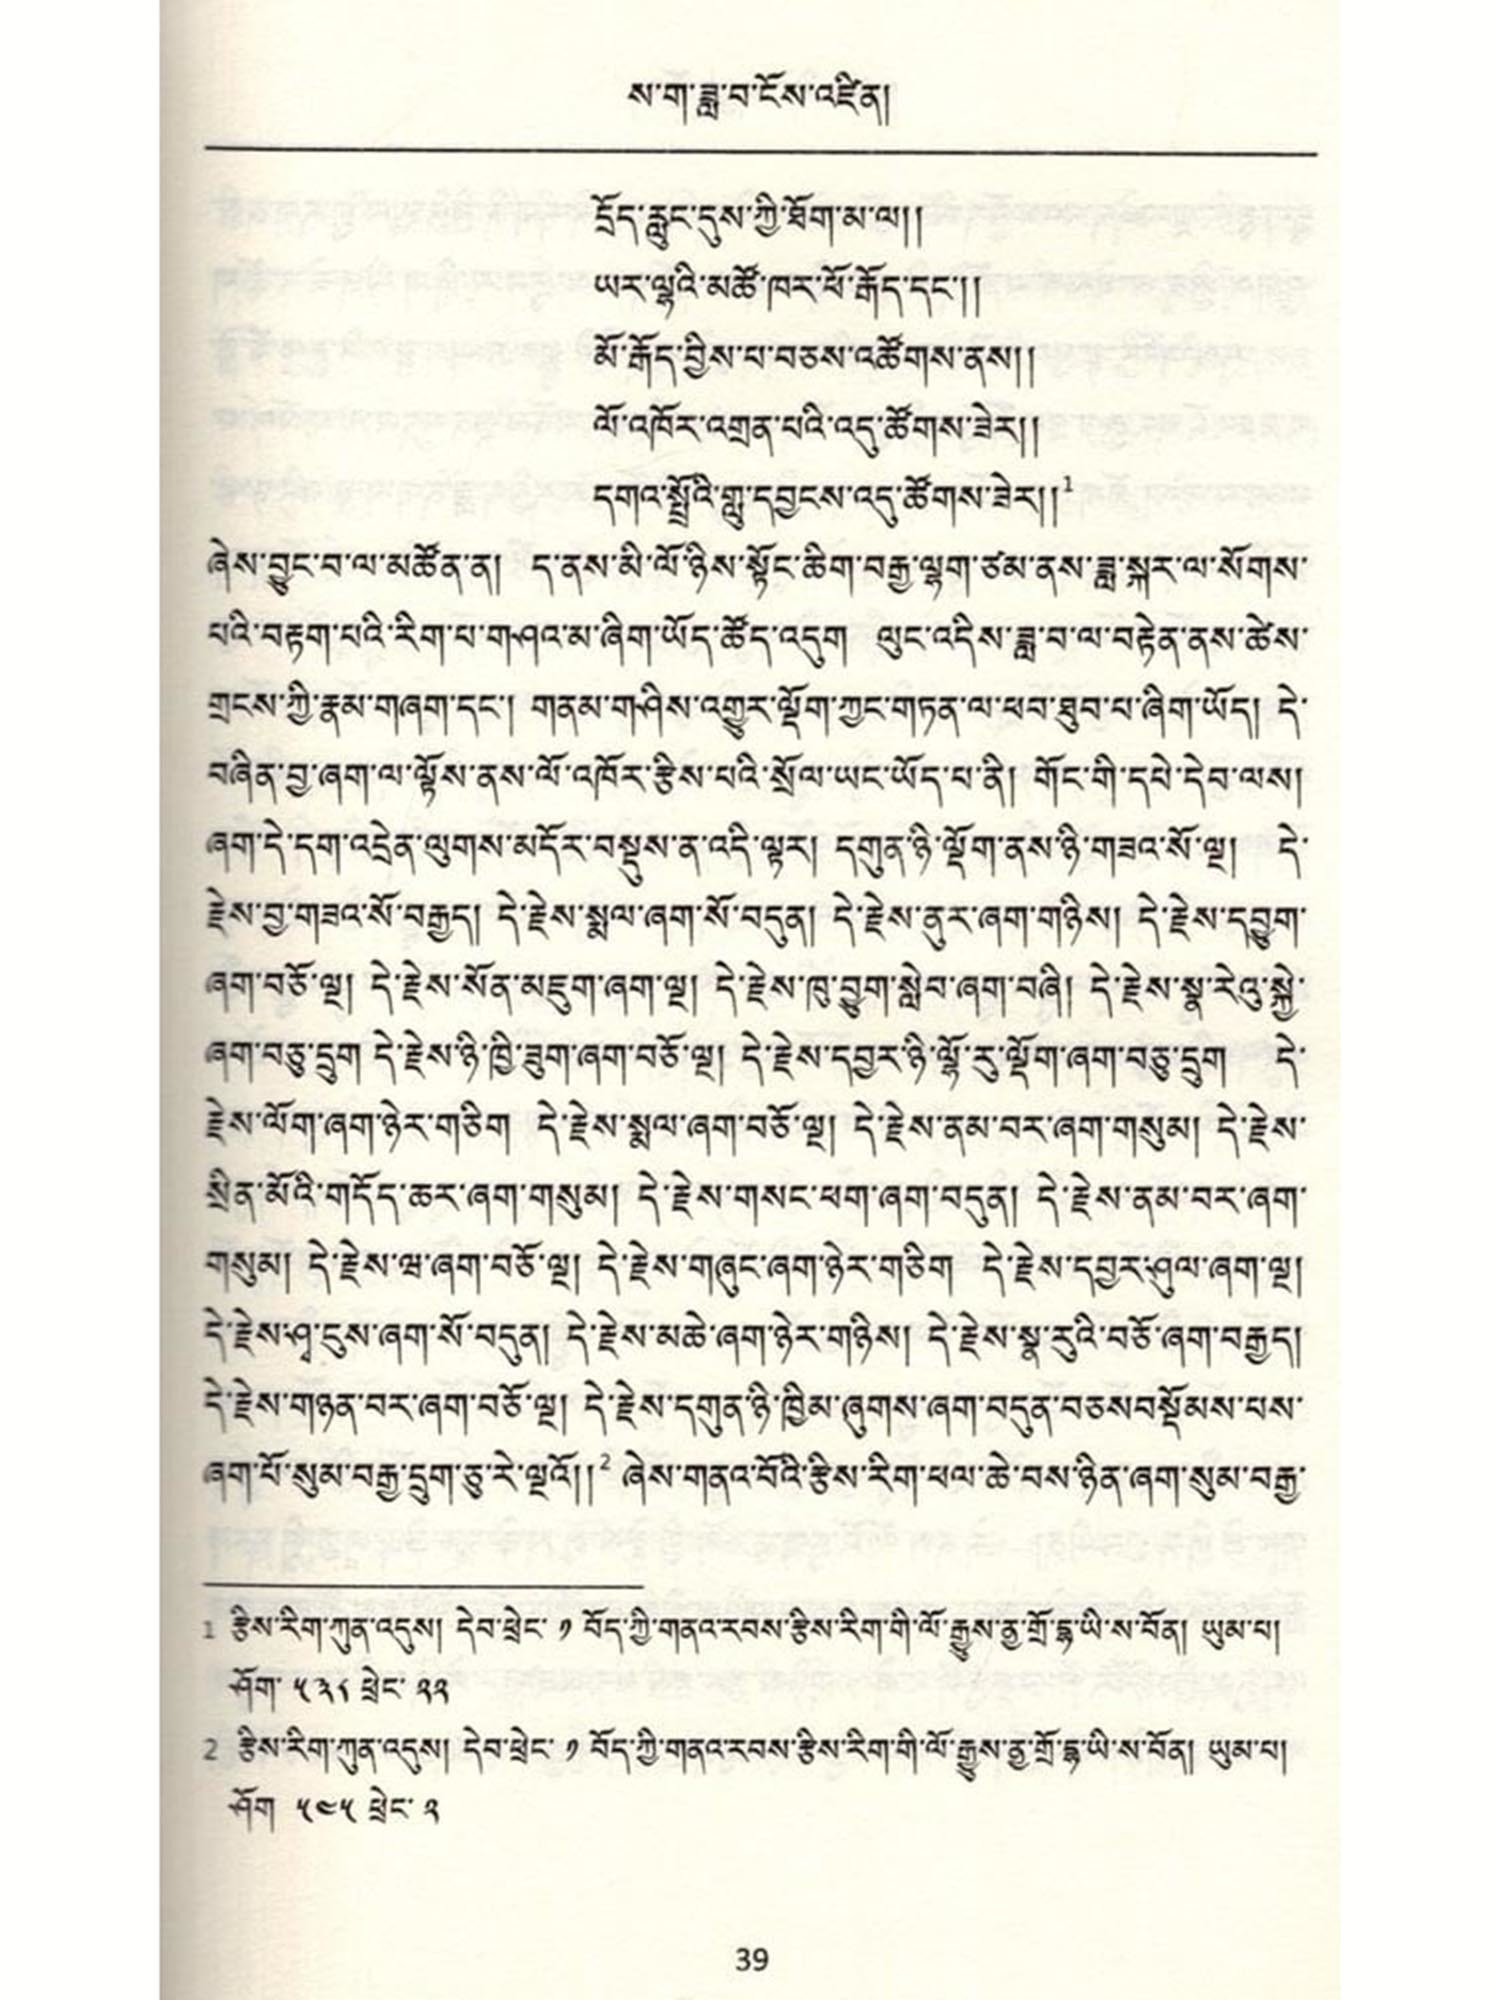 ས་ག་ཟླ་བ་ངོས་འཛིན།
དྲོད་རླུང་དུས་ཀྱི་ཐོག་མ་ལ།།
ཡར་ལྷའི་མཚོ་ཁར་ཕོ་རྒོད་དང་།།
མོ་རྒོད་བྱིས་པ་བཅས་འཚོགས་ནས།།
ལོ་འཁོར་འགྲན་པའི་འདུ་ཚོགས་ཟེར།།
དགའ་སྤྲོའི་གླུ་དབྱངས་འདུ་ཚོགས་ཟེར།།1
ཞེས་བྱུང་བ་ལ་མཚོན་ན། ད་ནས་མི་ལོ་ཉིས་སྟོང་ཆིག་བརྒྱ་ལྷག་ཙམ་ནས་ཟླ་སྐར་ལ་སོགས་
པའི་བརྟག་པའི་རིག་པ་གཤའ་མ་ཞིག་ཡོད་ཚོད་འདུག ལུང་འདིས་ཟླ་བ་ལ་བརྟེན་ནས་ཚེས་
གྲངས་ཀྱི་རྣམ་གཞག་དང་། གནམ་གཤིས་འགྱུར་ལྡོག་ཀྱང་གཏན་ལ་ཕབ་ཐུབ་པ་ཞིག་ཡོད། དེ་
བཞིན་བྱ་ཞག་ལ་ལྟོས་ནས་ལོ་འཁོར་རྩིས་པའི་སྲོལ་ཡང་ཡོད་པ་ནི། གོང་གི་དཔེ་དེབ་ལས།
ཞག་དེ་དག་འདྲེན་ལུགས་མདོར་བསྡུས་ན་འདི་ལྟར། དགུན་ཉི་ལྡོག་ནས་ཉི་གཟའ་སོ་ལྔ། དེ་
རྗེས་བྱ་གཟའ་སོ་བརྒྱད། དེ་རྗེས་སྨལ་ཞག་སོ་བདུན། དེ་རྗེས་ནུར་ཞག་གཉིས། དེ་རྗེས་དབྱུག་
ཞག་བཅོ་ལྔ། དེ་རྗེས་སོན་མཇུག་ཞག་ལྔ། དེ་རྗེས་ཁུ་བྱུག་སླེབ་ཞག་བཞི། དེ་རྗེས་སྣ་རེའུ་སྐྱེ་
ཞག་བཅུ་དྲུག དེ་རྗེས་ཉི་ཁྱི་ཟུག་ཞག་བཅོ་ལྔ། དེ་རྗེས་དབྱར་ཉི་ལྷོ་རུ་ལྡོག་ཞག་བཅུ་དྲུག དེ་
རྗེས་ལོག་ཞག་ཉེར་གཅིག དེ་རྗེས་སྨལ་ཞག་བཅོ་ལྔ། དེ་རྗེས་ནམ་བར་ཞག་གསུམ། དེ་རྗེས་
སྲིན་མོའི་གདོད་ཆར་ཞག་གསུམ། དེ་རྗེས་གསང་ཕག་ཞག་བདུན། དེ་རྗེས་ནམ་བར་ཞག་
གསུམ། དེ་རྗེས་ཝ་ཞག་བཅོ་ལྔ། དེ་རྗེས་གཞུང་ཞག་ཉེར་གཅིག དེ་རྗེས་དབྱར་ཤུལ་ཞག་ལྔ།
དེ་རྗེས་ཤྭ་དུས་ཞག་སོ་བདུན། དེ་རྗེས་མཆེ་ཞག་ཉེར་གཉིས། དེ་རྗེས་སྣ་རུའི་བཅོ་ཞག་བརྒྱད།
དེ་རྗེས་གཉན་བར་ཞག་བཅོ་ལྔ། དེ་རྗེས་དགུན་ཉི་ཁྱིམ་ཞུགས་ཞག་བདུན་བཅསབསྡོམས་པས་
ཞག་པོ་སུམ་བརྒྱ་དྲུག་ཅུ་རེ་ལྔའོ།།2 ཞེས་གནའ་བོའི་རྩིས་རིག་ཕལ་ཆེ་བས་ཉིན་ཞག་སུམ་བརྒྱ་
1 རྩིས་རིག་ཀུན་འདུས། དེབ་ཕྲེང་ ༡ བོད་ཀྱི་གནའ་རབས་རྩིས་རིག་གི་ལོ་རྒྱུས་ནྱ་གྲོ་དྷ་ཡི་ས་བོན། ཡུམ་པ།
ཤོག་ ༥༣༨ ཕྲེང་ ༢༢
2 རྩིས་རིག་ཀུན་འདུས། དེབ་ཕྲེང་ ༡ བོད་ཀྱི་གནའ་རབས་རྩིས་རིག་གི་ལོ་རྒྱུས་ནྱ་གྲོ་དྷ་ཡི་ས་བོན། ཡུམ་པ།
ཤོག ༥༤༥ ཕྲེང་ ༢
39